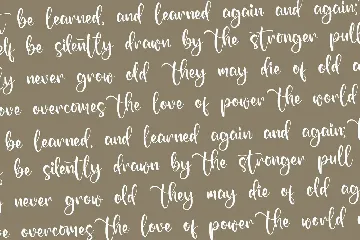 be learned, and learned again and again;
be silently drawn by the stronger pull
never grow old they may die of old
love overcomes the love of power the world
be learned, and learned again and again;
be silently drawn by the stronger pull
never grow old they may die of old ag
ove overcomes the love of power the world